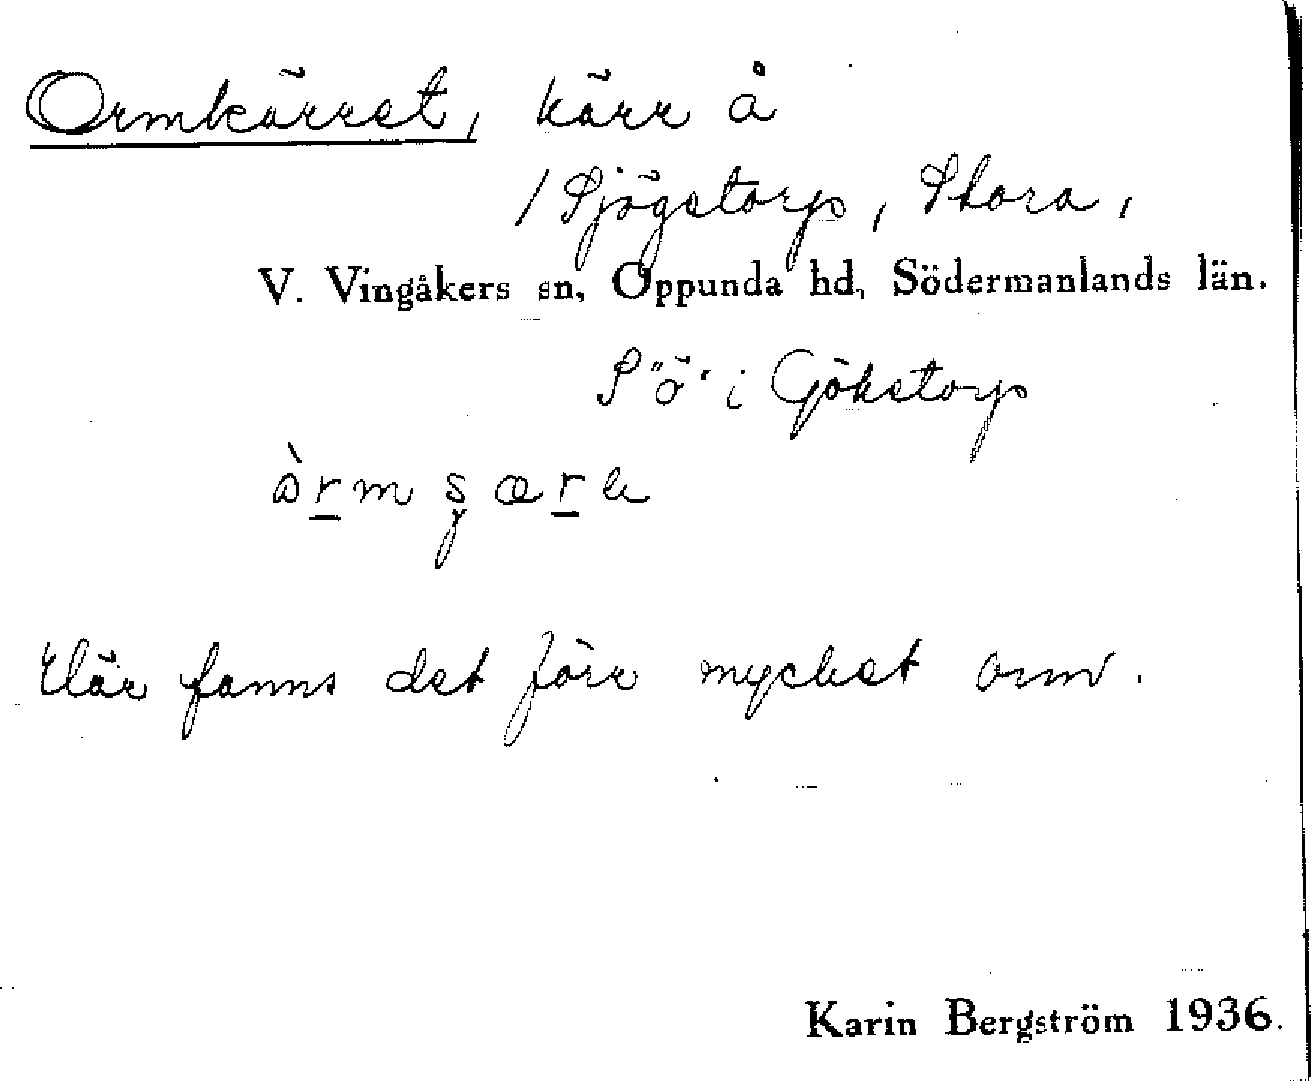 Ormkärret, kärr å
/ Sjögstorp, Stora,
V. Vingåkers sn, Oppunda hd, Södermanlands län.
S"ö" i Gökstorp
Här fanns det förr mycket orm.
Karin Bergström 1936.